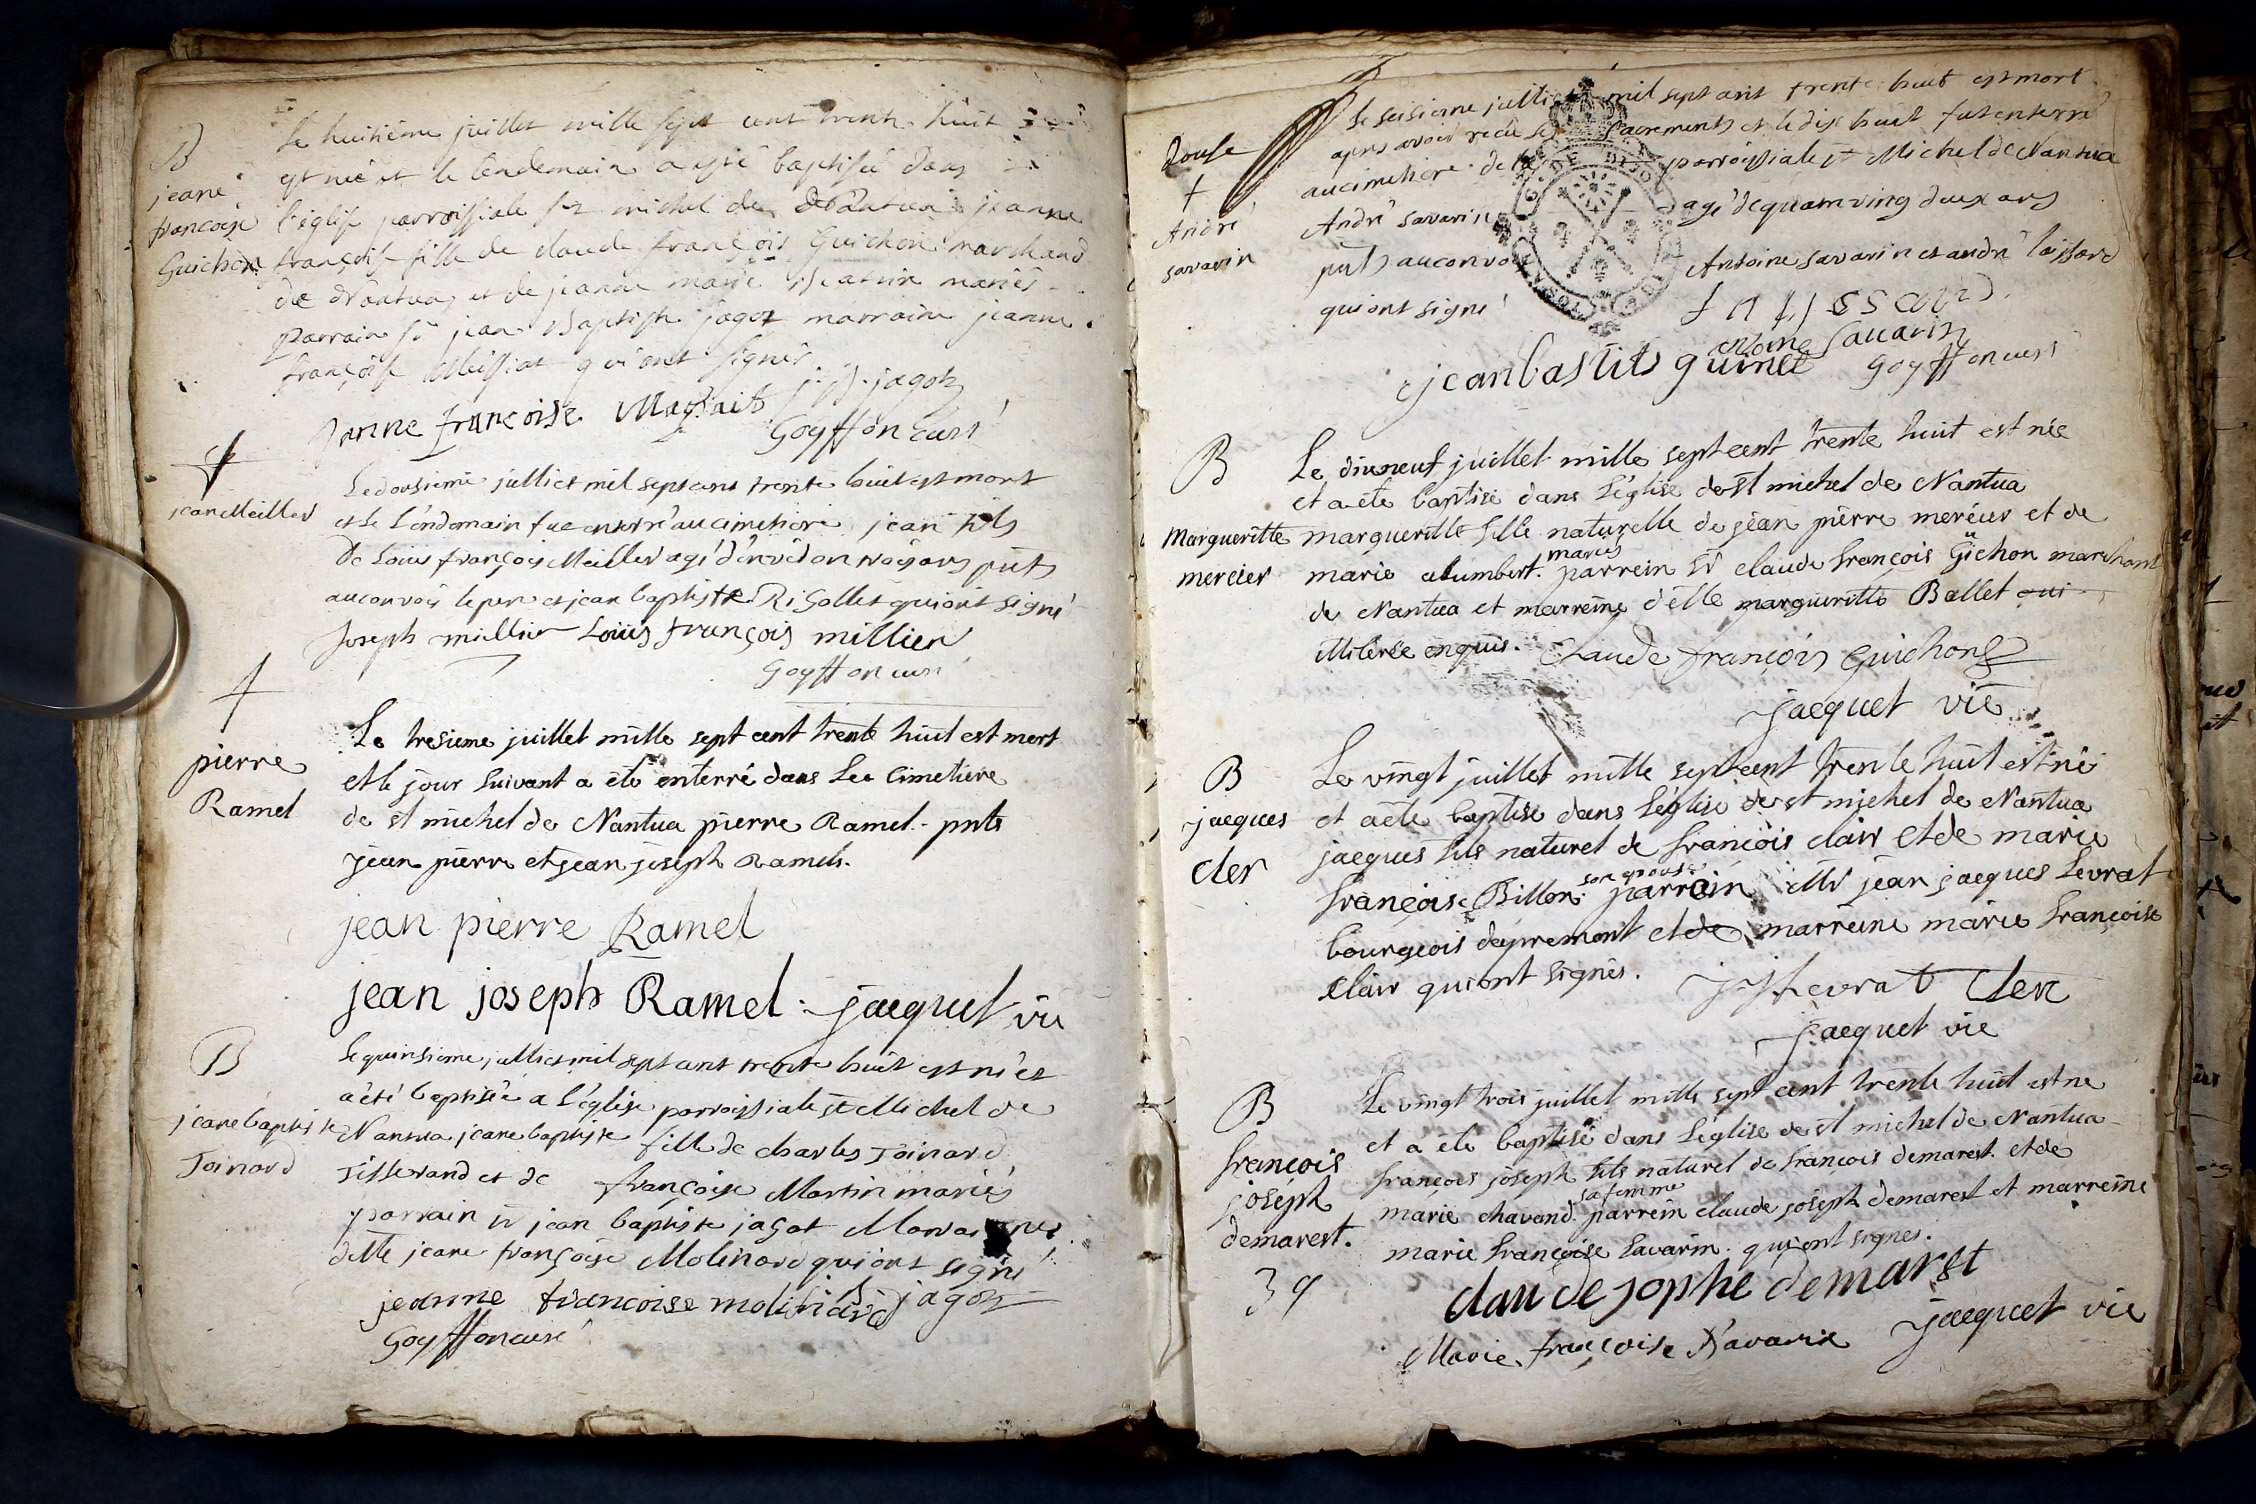 B
jeane
francoise
Guichon
Le huitiême juillet mille sept cent trente huit
est née et le lendemain a esté baptisée dans
l'églisse parroissiale st michel de Nantua jeanne
françoise fille de claude françois Guichon marchand
de Nantua et de jeanne marie mariés
parrain sr jean Baptiste jagot marraine jeanne
françoise Messiat qui ont signés
janne francoise j. b. jagot
Goyffon curé
jean Meiller
Le dousieme julliet mil sept cens trente huit est mort
et le l'endemain fut enterré au cimetiere jean fils
De Louis françois Meiller agé d'environ trois ans pnts
au convois le pere et jean baptiste Rigollet qui ont signé
Joseph millier Louis françois millier
Goyffon curé
pierre
Ramel
Le tresieme juillet mille sept cent trente huit est mort
et le jour suivant a été enterré dans Le Cimetiere
de st michel de Nantua pierre Ramel. pnts
jean pierre et jean joseph Ramels.
jean pierre Ramel
jean joseph Ramel jacquet vic
B
jeane baptiste
Joinard
Le quinsieme julliet mil sept cent trente huit est née et
a été baptisée a l'église parroissiale st Michel de
Nantua jeane baptiste fille de charles Joinard
Tisserand et de françoise Martin mariés
parrain sr jean baptiste jagot Marraine
delle jeane françoise Molinard qui ont signé
jeanne francoise molinard jagot
Goyffon curé
Douse
André
savarin
Le seisieme julliet mil sept cent trente huit est mort
apres avoir recu les sacrements et le dix huit fut enterré
au cimetiere de parroissiale st Michel de Nantua
André savarin agé de quatrevingt deux ans
pnts au convoi Antoine savarin et andré
qui ont signé
antoine savarin
jean bastits guinet Goyffon curé
B
Margueritte
mercier
Le dixneuf juillet mille sept cent trente huit est née
et a été baptisé dans L'église de st michel de Nantua
margueritte fille naturelle de jean pierre mercier et de
mariés
marie alumbert. parrein sr claude françois Guichon marchant
de Nantua et marreine delle margueritte Ballet qui
illiterée enquis. Claude françois Guichon
jacquet vic
B
jacques
cler
Le vingt juillet mille sept cent trente huit est né
et a été baptisé dans L'église de st michel de Nantua
jacques fils naturel de françois clair et de marie
son epouse
françoise Billon parrain Mr jean jacques Levrat
bourgeois dapremont et de marreine marie françoise
clair qui ont signés.
jj Levrat Cler
jacquet vic
B
françois
joseph
demarest.
Le vingt trois juillet mille sept cent trente huit est né
et a été baptisé dans L'église de st michel de Nantua
françois joseph fils naturel de françois demarest. et de
sa femme
marie chavand. parrein claude joseph demarest et marreine
marie françoise Savarin. qui ont signés.
claude josphe demarest
Marie. françoise Savarin jacquet vic
39